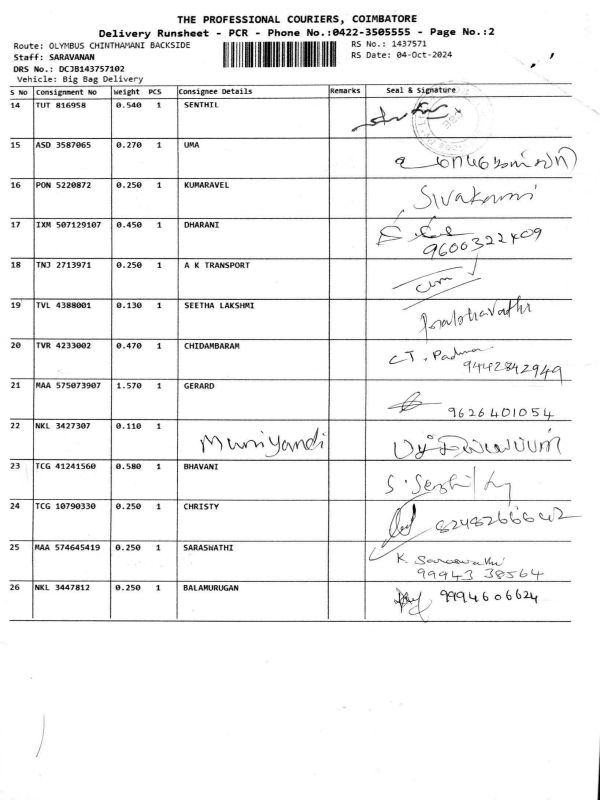 THE PROFESSIONAL COURIERS, COIMBATORE
Delivery Runsheet - PCR - Phone No.:0422-3505555 - Page No.:2
Route: OLYMBUS CHINTHAMANI BACKSIDE RS No.: 1437571
Staff: SARAVANAN RS Date: 04-Oct-2024
DRS No.: DCJB143757102
Vehicle: Big Bag Delivery
S No Consignment No Weight PCS Consignee Details Remarks Seal & Signature
14 TUT 816958 0.540 1 SENTHIL
15 ASD 3587065 0.270 1 UMA
16 PON 5220872 0.250 1 KUMARAVEL Sivakami
17 IXM 507129107 0.450 1 DHARANI
9600322409
18 TNJ 2713971 0.250 1 A K TRANSPORT
19 TVL 4388001 0.130 1 SEETHA LAKSHMI
20 TVR 4233002 0.470 1 CHIDAMBARAM C.T. Padma
9442842949
21 MAA 575073907 1.570 1 GERARD
9626401054
22 NKL 3427307 0.110 1 Muniyandi
23 TCG 41241560 0.580 1 BHAVANI
24 TCG 10790330 0.250 1 CHRISTY
25 MAA 574645419 0.250 1 SARASWATHI K. Saraswathi
99943 38564
26 NKL 3447812 0.250 1 BALAMURUGAN 9994606624